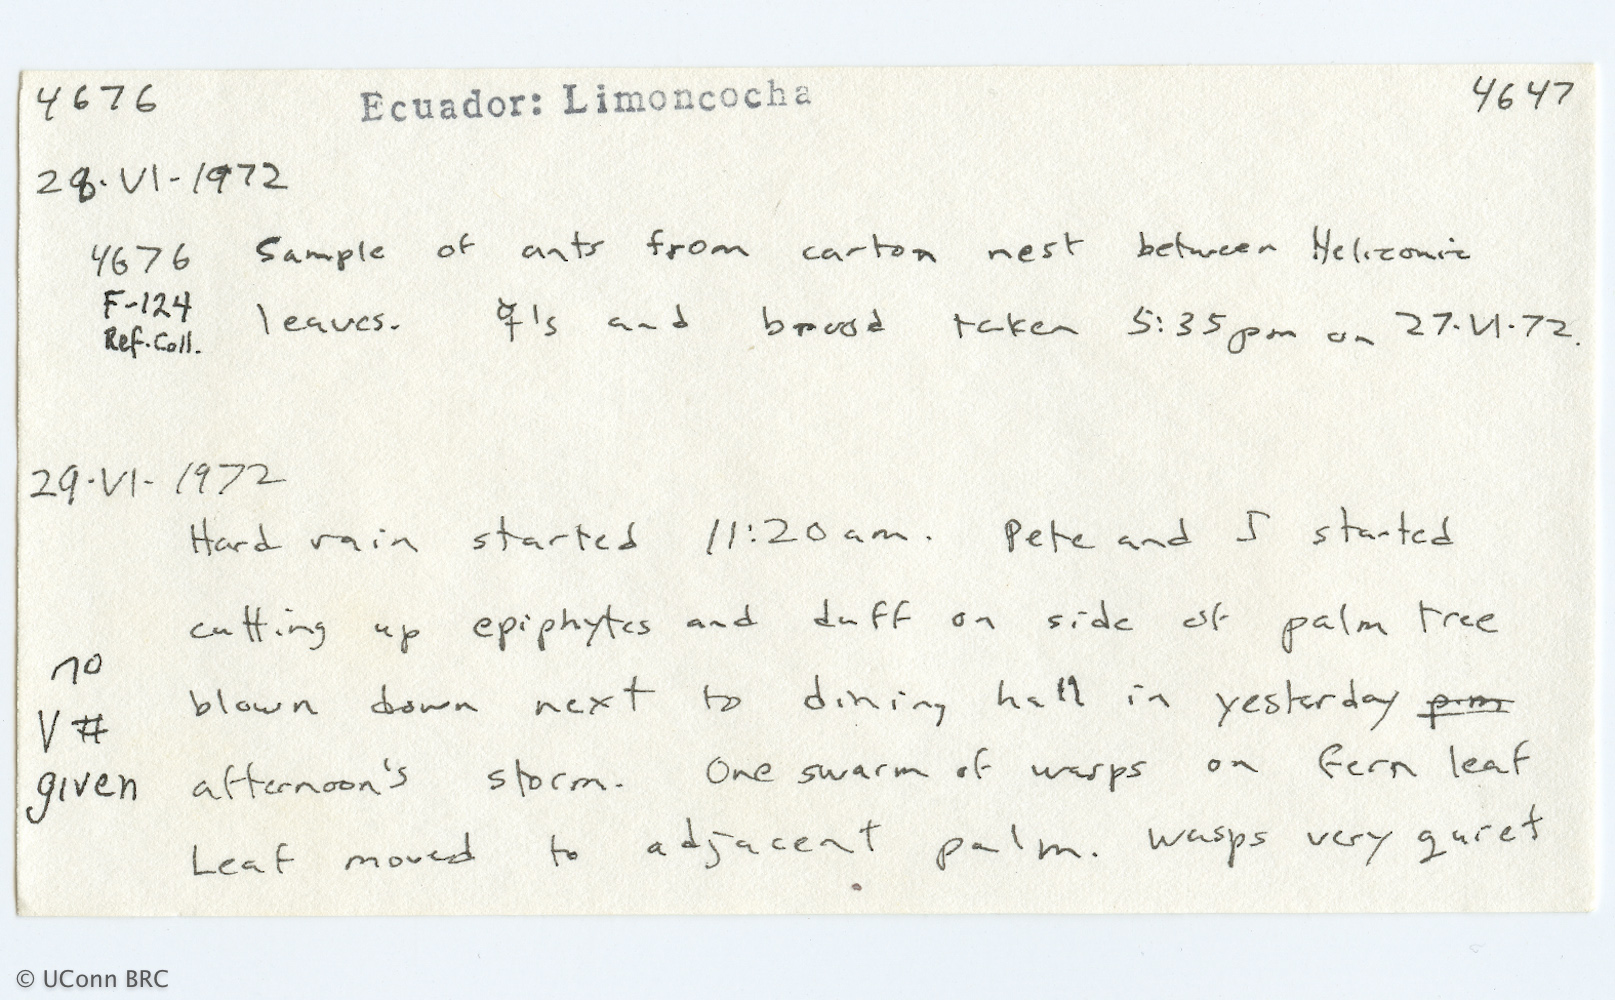 4676 Ecuador: Limoncocha 4647
28·VI-1972
4676 Sample of ants from carton nest between Heliconia
F-124
Ref. Coll.
leaves. ☿'s and brood taken 5:35pm on 27·VI·72.
29·VI-1972
Hard rain started 11:20 am. Pete and I started
cutting up epiphytes and duff on side of palm tree
no
V#
given
blown down next to dining hall in yesterday pm
afternoon's storm. One swarm of wasps on fern leaf
Leaf moved to adjacent palm. Wasps very quiet
© UConn BRC